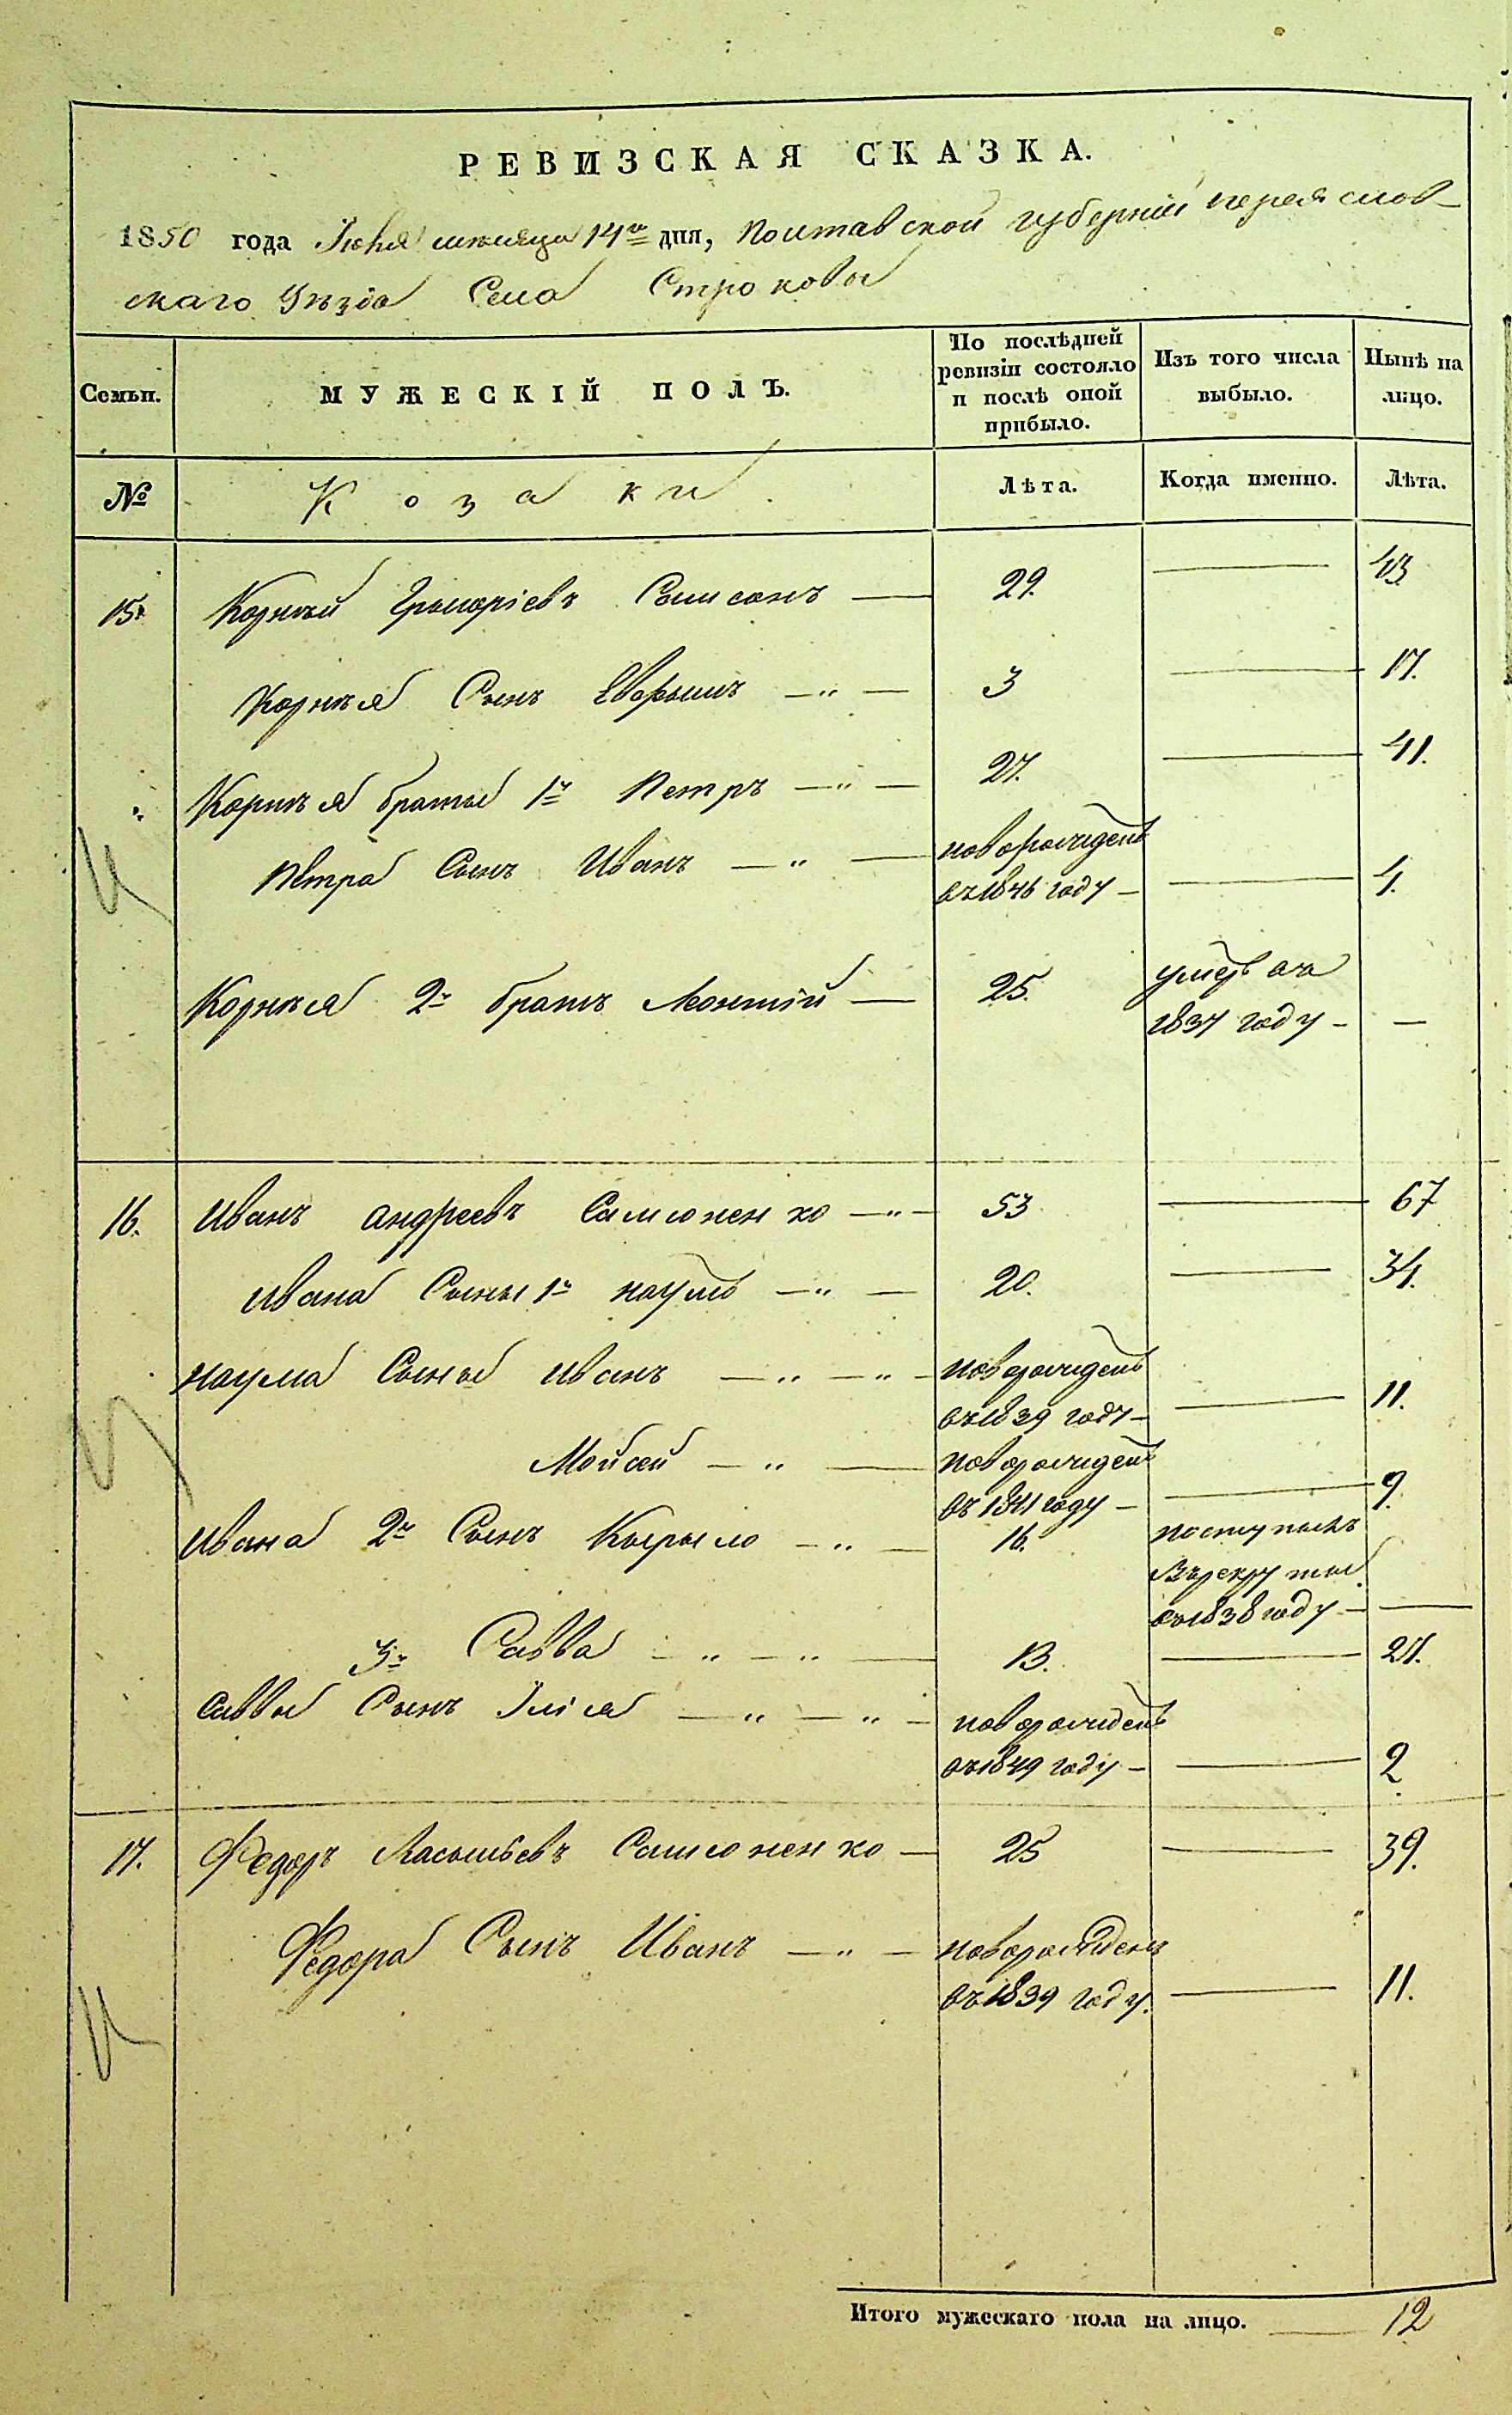 РЕВИЗСКАЯ СКАЗКА.
1850 года Июня месяца 14го дня, Полтавской губерніи переяслов-
скаго Уѣзда Села Строковы
Семьи.
МУЖЕСКІЙ ПОЛЪ.
По послѣдней ревизіи состояло и послѣ оной прибыло.
Изъ того числа выбыло.
Нынѣ на лицо.
№
Козаки
Лѣта.
Когда именно.
Лѣта.
15. Корнѣй Григоріевъ Самсонъ — 29. — 43
Корнѣя Сынъ Ефримъ —"— 3 — 17.
Корнѣя братья 1й Петръ —"— 27. — 41.
Петра Сынъ Иванъ —"— новорожденъ
въ 1846 году — — 4.
Корнѣя 2й братъ Леонтій — 25. умеръ въ
1837 году — —
16. Иванъ Андреевъ Самсоненко —"— 53 — 67
Ивана Сыны 1й Наумъ —"— 20. — 34.
Наума Сыны Иванъ —"—"— новорожденъ
въ 1839 году — — 11.
Мойсей —"— новорожденъ
въ 1841 году — — 9.
Ивана 2й Сынъ Кырыло —"— 16. поступилъ
въ рекруты
въ 1838 году — —
3й Савва —"—"— 13. — 27.
Саввы Сынъ Илія —"—"— новорожденъ
въ 1849 году — — 2
17. Федоръ Василіевъ Самсоненко — 25 — 39.
Федора Сынъ Иванъ —"— новорожденъ
въ 1839 году. — 11.
Итого мужескаго пола на лицо. — 12